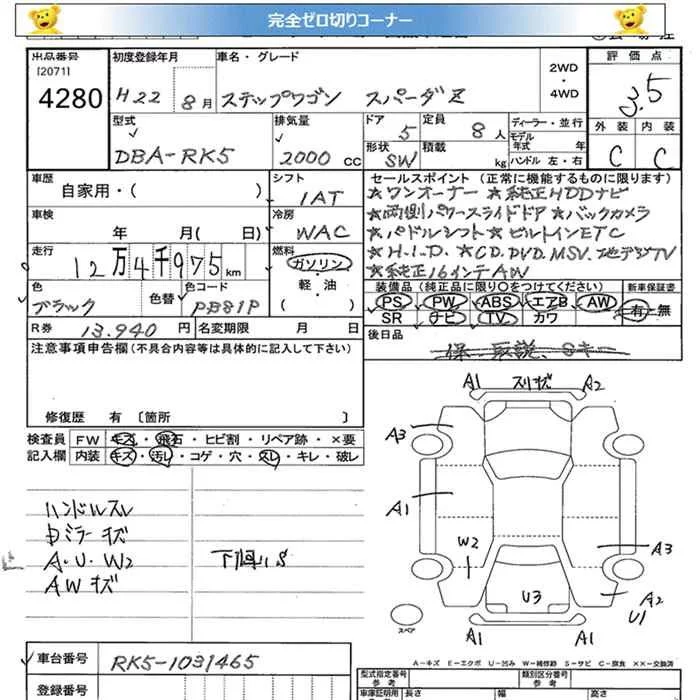 完全ゼロ切りコーナー
出品番号
[2071]
4280
初度登録年月
H22 8月
車名・グレード
ステップワゴン スパーダZ
2WD
・
4WD
評価点
3.5
外装 内装
C C
型式
DBA-RK5
排気量
2000 CC
ドア 5
定員 8 人
形状 SW
積載 kg
ディーラー・並行
モデル年式 年
ハンドル 左・右
車歴
自家用・( )
シフト
IAT
車検
年 月( 日)
冷房
WAC
走行
12万4千975km
燃料
ガソリン
・
軽・油
( )
色
ブラック
色替
色コード
PB81P
R券 13.940 円
名変期限 月 日
セールスポイント (正常に機能するものに限ります)
★ワンオーナー ★純正HDDナビ
★両側パワースライドドア ★バックカメラ
★パドルシフト ★ビルトインETC
★H.I.D. ★CD.DVD.MSV.地デジTV
★純正16インチAW
装備品(純正品に限り○をつけてください)
新車保証書
PS PW ABS エアB AW
SR ナビ TV カワ
有・無
後日品
保 取説、Sキー
注意事項申告欄(不具合内容等は具体的に記入して下さい)
修復歴 有 〔箇所 〕
検査員
記入欄
FW キズ・飛石・ヒビ割・リペア跡・×要
内装 キズ・汚レ・コゲ・穴・スレ・キレ・破レ
ハンドルスレ
Dミラーキズ
A・U・W2
AWキズ
下廻りS
A1 スリキズ A2
A3
A1
W2
A3
U3
A2
U1
A1 A1
スペア
A-キズ E-エクボ U-凹み W-補修跡 S-サビ C-腐食 ××-交換済
車台番号
RK5-1031465
登録番号
型式指定番号
参考
類別区分番号
参考
車庫証明
長さ 幅 高さ